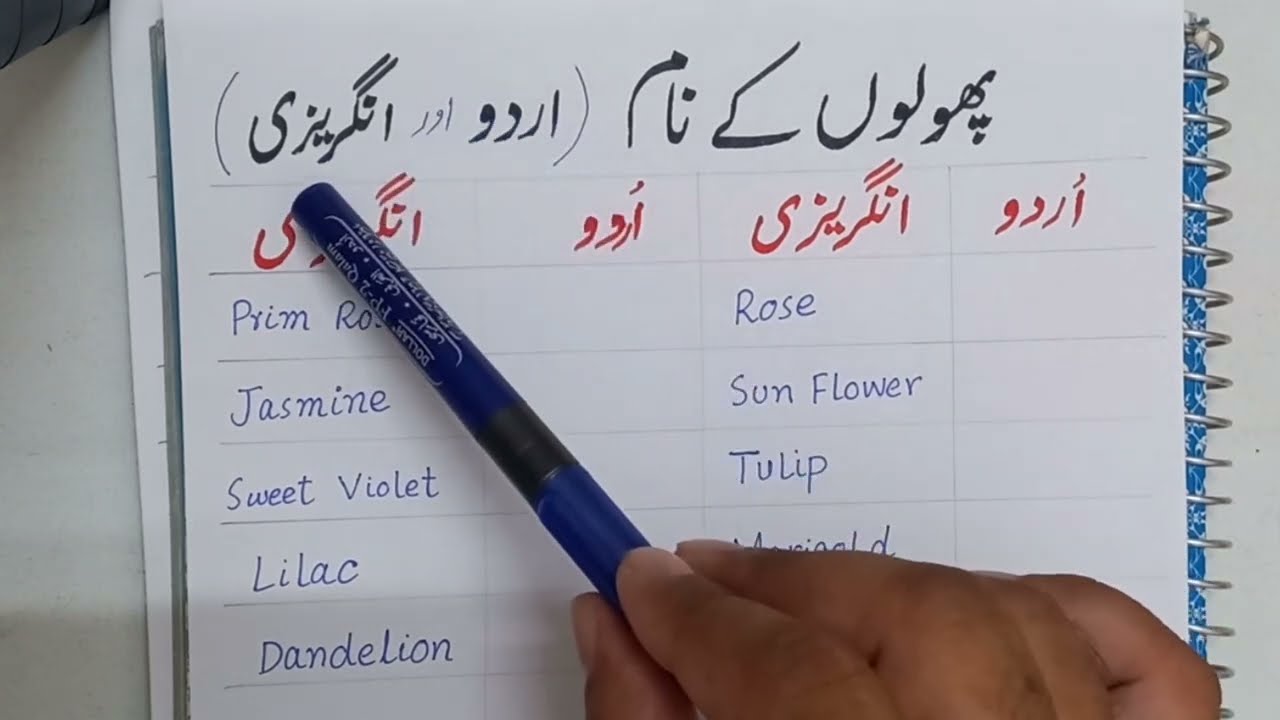 پھولوں کے نام (اردو اور انگریزی)
اُردو انگریزی اُردو انگریزی
Prim Rose Rose
Jasmine Sun Flower
Sweet Violet Tulip
Lilac Marigold
Dandelion
DOLLAR FP-2 Qalam